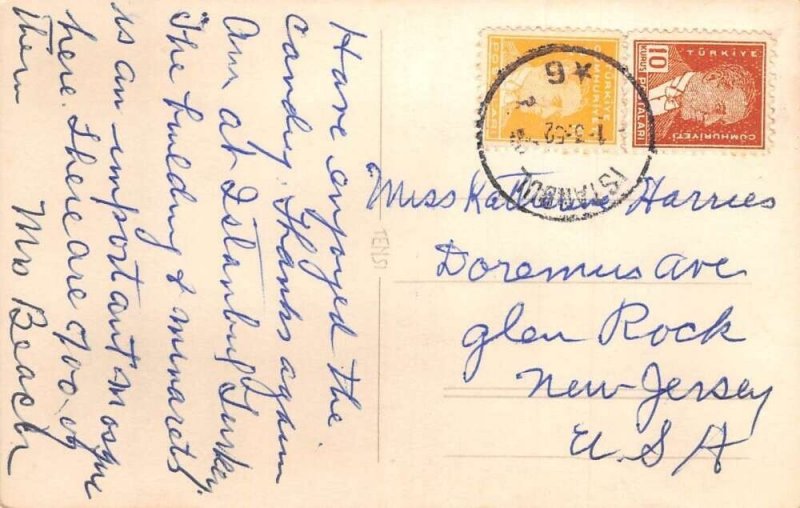 Have enjoyed the
candy. Thanks again
Am at Istanbul Turkey.
The building & minarets
is an important mosque
here. There are 900 of
them Mrs Beach
TÜRKİYE
CUMHURİYETİ
TÜRKİYE
10
KURUŞ POSTALARI
CUMHURİYETİ
ISTANBUL
6
Miss Katherine Harries
Doremus Ave
Glen Rock
New Jersey
U.S A